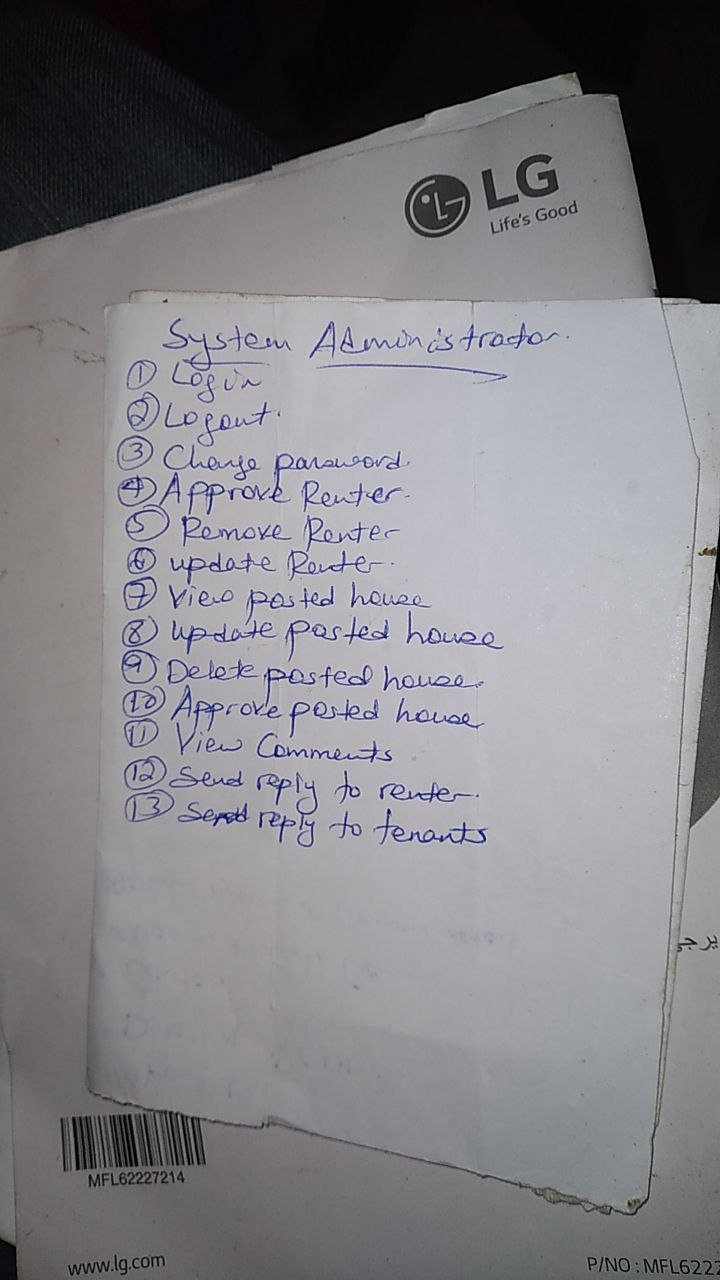 LG
Life's Good
System Administrator.
① Login
② Logout.
③ Change password.
④ Approve Renter.
⑤ Remove Renter
⑥ update Renter.
⑦ View posted house
⑧ update posted house
⑨ Delete posted house.
⑩ Approve posted house
⑪ View Comments
⑫ Send reply to renter.
⑬ Send reply to tenants
يرجى
MFL62227214
www.lg.com
P/NO : MFL6222